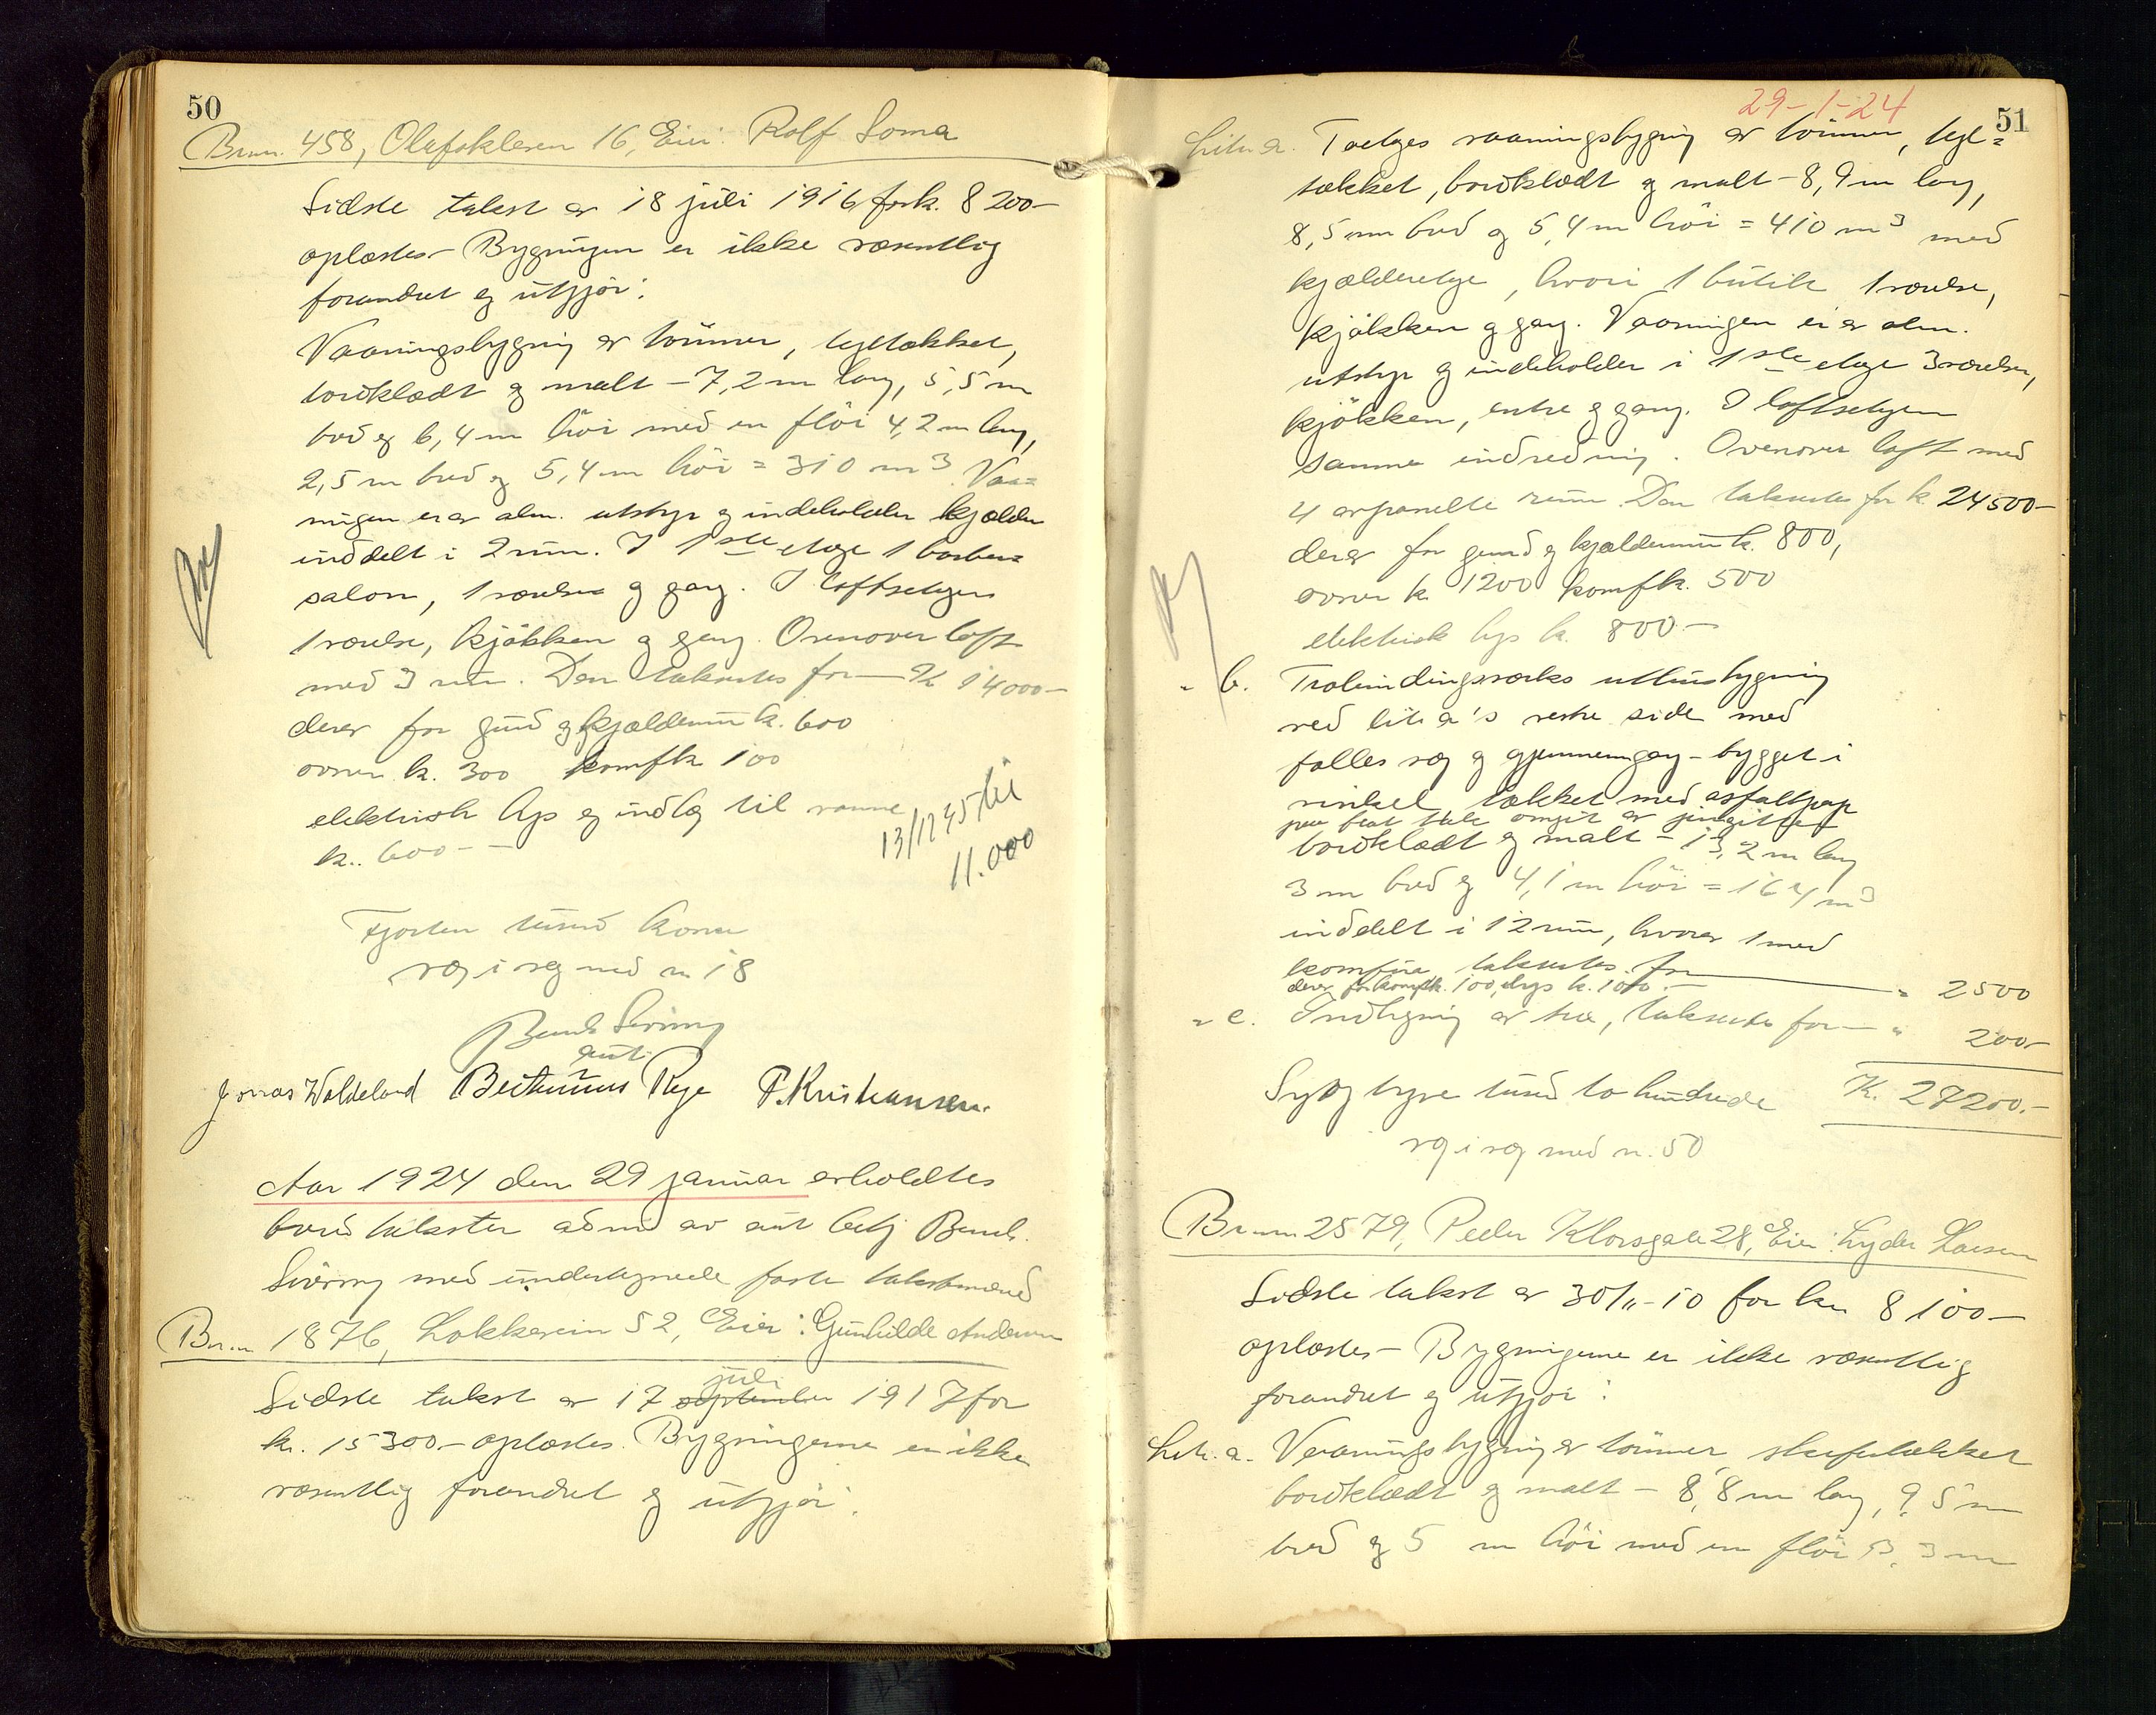 50
Br.nr. 458, Olafskleven 16, Eier: Rolf Soma
Sidste takst av 18 juli 1916 for k. 8 200-
oplæstes - Bygningen er ikke væsentlig
forandret og utgjør:
Vaaningsbygning av tømmer, tegltækket,
bordklædt og malt - 7,2 m lang, 5,5 m
bred og 6,4 m høi med en fløi 4,2 m lang,
2,5 m bred og 5,4 m høi = 310 m3. Vaa=
ningen er av alm. utstyr og indeholder kjælder
inddelt i 2 rum. I 1ste etage 1 barber=
salon, 1 værelse og gang. I loftsetagen
1 værelse, kjøkken og gang. Ovenover loft
med 3 rum. Den takseres for - K 14000-
derav for grund og kjældermur k. 600
ovner k. 300 komf k 100
elektrisk lys og indlæg til
k. 600--
13/12 45
11.000
Fjorten tusind kroner
væg i væg med nr 18
Bernh Sivering
aut.
Jonas Waldeland Berthinius Rege P. Kristiansen.
Aar 1924 den 29 januar avholdtes
brandtakster adm av aut betj Bernh.
Sivering med undertegnede faste takstmænd
Br.nr. 1876, Lokkeveien 52, Eier: Gunhilde Andersen
juli
Sidste takst av 17 september 1917 for
kr. 15300- oplæstes. Bygningerne er ikke
væsentlig forandret og utgjør:
29-1-24
51
Litr. a. Toetages vaaningsbygning av tømmer, tegl=
tækket, bordklædt og malt - 8,9 m lang,
8,5 m bred og 5,4 m høi = 410 m3 med
kjælderetage, hvori 1 butik 1 værelse,
kjøkken og gang. Vaaningen er av alm.
utstyr og indeholder i 1ste etage 3 værelser,
kjøkken, entre og gang. I loftsetagen
samme indredning. Ovenover loft med
4 avpanelte rum. Den takseres for k. 24500-
derav for grund og kjældermur k. 800,
ovner k. 1200 komf k. 500
elektrisk lys k. 800-
" b. Trebindingsverks uthusbygning
ved litr a's vestre side med
fælles væg og gjennemgang - bygget i
vinkel, tækket med asfaltpap
paa flat tak omgit av
bordklædt og malt - 13,2 m lang
3 m bred og 4,1 m høi = 164 m3
inddelt i 12 rum, hvorav 1 med
komfur takseres for - " 2500
derav for komf k. 100, el lys k. 100.-
" c. Indhegning av træ, takseres for - " 200-
Syv og tyve tusind to hundrede K. 27200.-
væg i væg med nr. 50
Br.nr. 2579, Peder Klowsgate 28, Eier: Lyder Larsen
Sidste takst av 30/11-10 for kr 8 100-
oplæstes - Bygningerne er ikke væsentlig
forandret og utgjør:
Litr. a. Vaaningsbygning av tømmer skifertækket
bordklædt og malt - 8,8 m lang, 9,5 m
bred og 5 m høi med en fløi 3,3 m